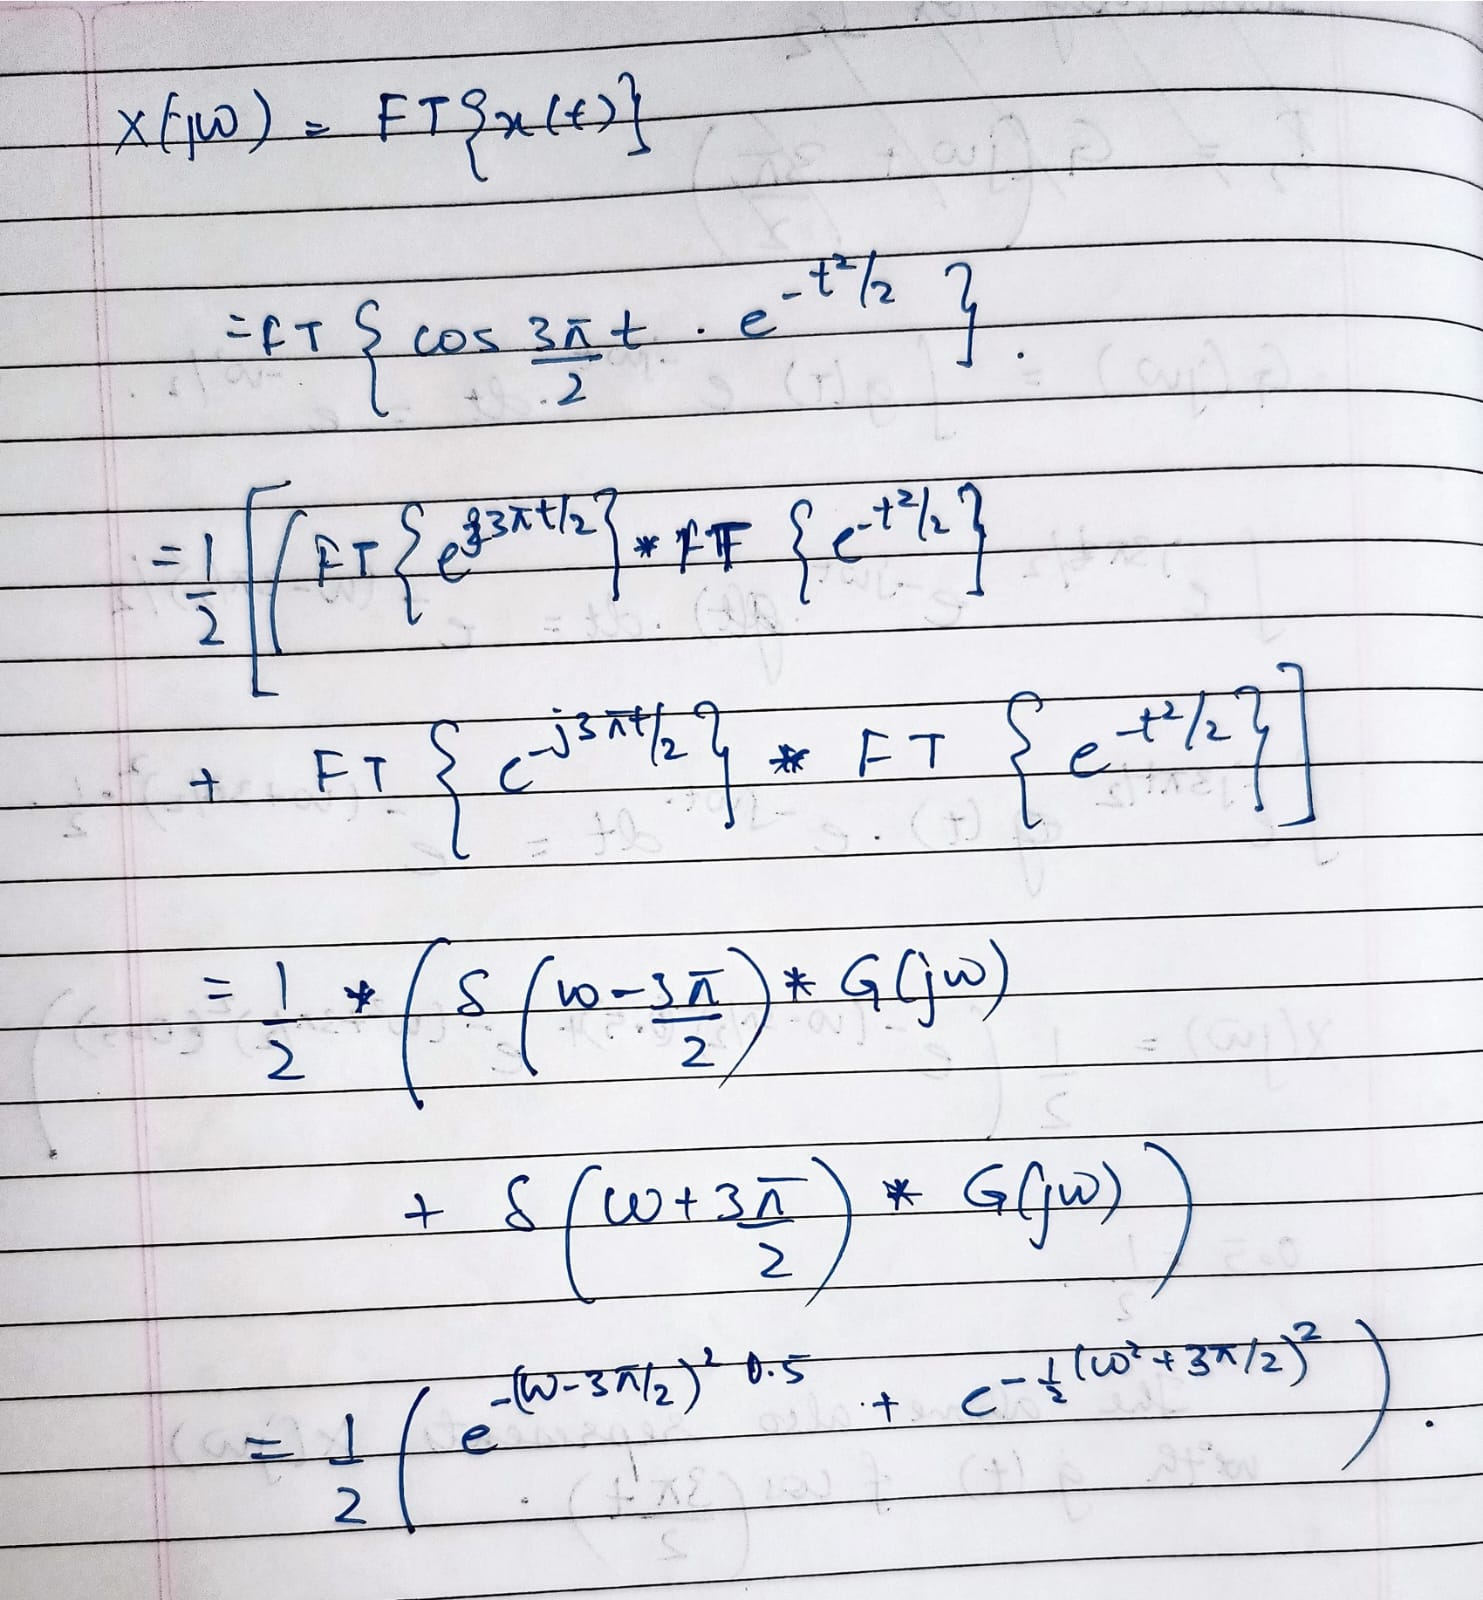 X(jω) = FT{x(t)}
= FT { cos 3π/2 t . e^{-t²/2} }.
= 1/2 [ ( FT { e^{j3πt/2} } * FT { e^{-t²/2} }
+ FT { e^{-j3πt/2} } * FT { e^{-t²/2} } ]
= 1/2 * ( δ ( ω - 3π/2 ) * G(jω)
+ δ ( ω + 3π/2 ) * G(jω) )
= 1/2 ( e^{-(ω-3π/2)² 0.5} + e^{-1/2 (ω² + 3π/2)²} ).